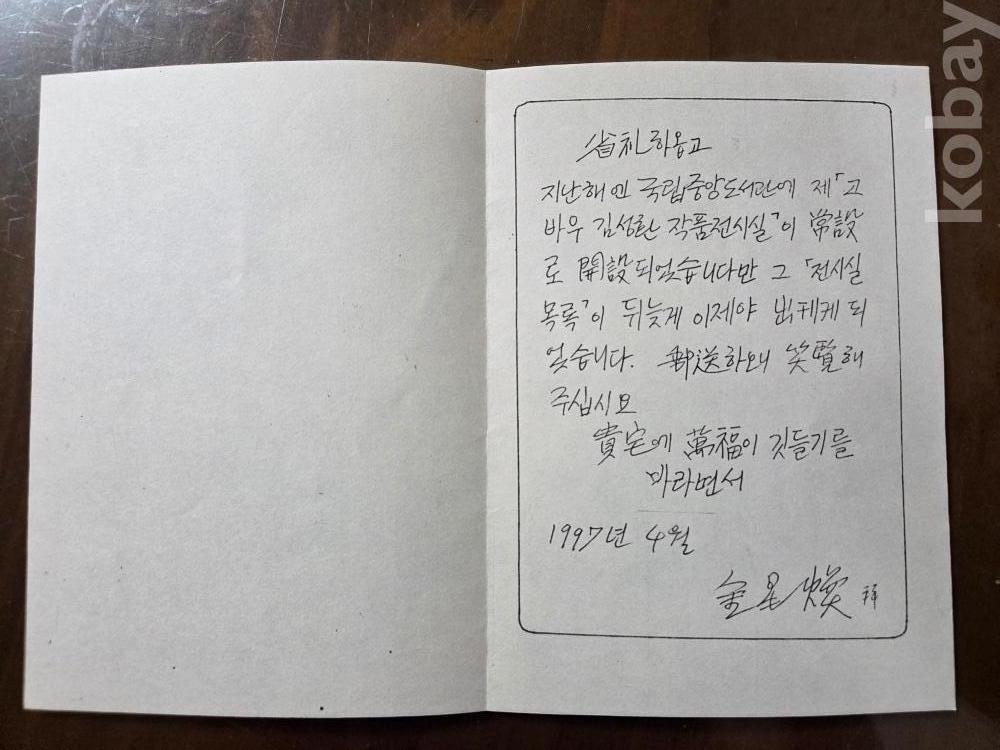 省礼하옵고
지난해엔 국립중앙도서관에 제「고
바우 김성환 작품전시실」이 常設
로 開設되었습니다만 그 「전시실
목록」이 뒤늦게 이제야 出刊케 되
었습니다. 郵送하오니 笑覽해
주십시요
貴宅에 萬福이 깃들기를
바라면서
1997년 4월
金星煥 拜
kobay